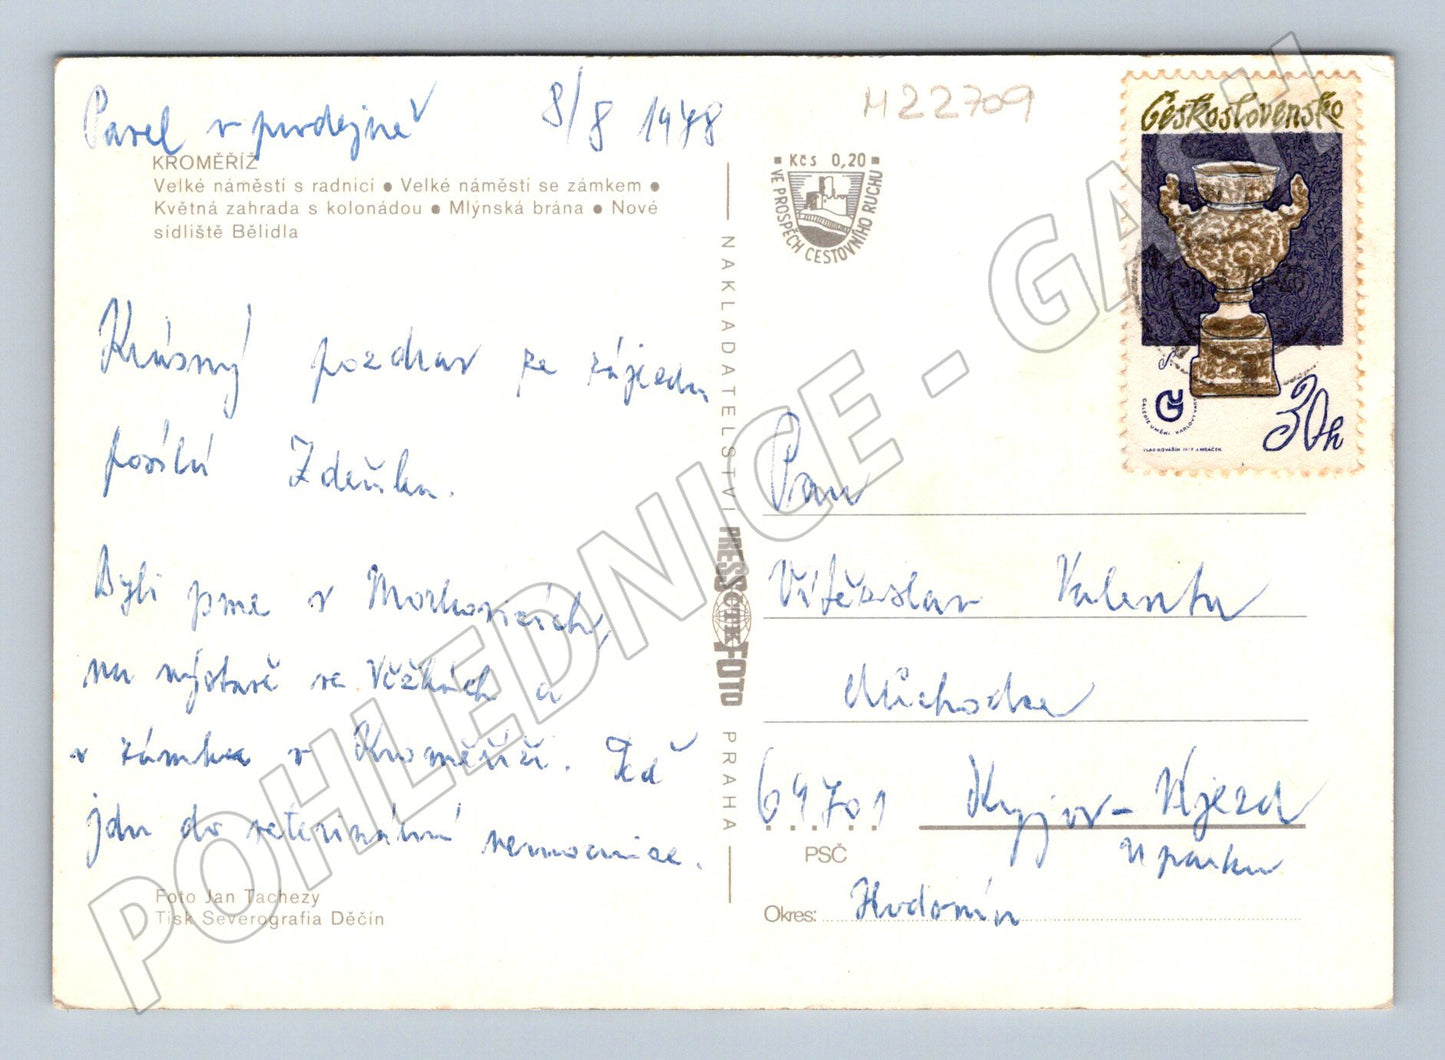 Pavel v prodejně 8/8 1978
M22709
KROMĚŘÍŽ
Velké náměstí s radnicí • Velké náměstí se zámkem •
Květná zahrada s kolonádou • Mlýnská brána • Nové
sídliště Bělidla
Krásný pozdrav ze zájezdu
posílá Zdeňka.
Byli jsme v Morkovicích,
na výstavě ve Věžkách a
v zámku v Kroměříži. Teď
jdu do veterinární nemocnice.
Foto Jan Tachezy
Tisk Severografia Děčín
NAKLADATELSTVÍ PRESSFOTO PRAHA
ČTK
Kčs 0,20
VE PROSPĚCH CESTOVNÍHO RUCHU
Československo
30h
GALERIE UMĚNÍ · KARLOVY VARY
Pan
Vítězslav Valenta
důchodce
69701 Kyjov - Kjezd
u parku
PSČ
Okres: Hodonín
POHLEDNICE - GACH